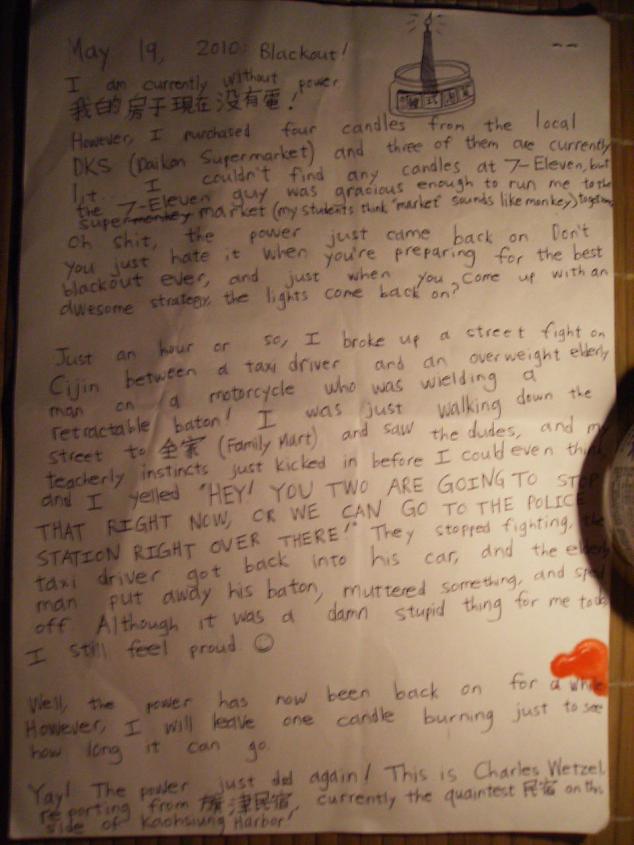 May 19, 2010: Blackout!
I am currently without power
我的房子現在没有電!
However, I purchased four candles from the local
DKS (Daikon Supermarket) and three of them are currently
lit. I couldn't find any candles at 7-Eleven, but
the 7-Eleven guy was gracious enough to run me to the
supermonkey market (my students think "market" sounds like monkey) together
Oh shit, the power just came back on Don't
you just hate it when you're preparing for the best
blackout ever, and just when you come up with an
awesome strategy, the lights come back on?
Just an hour or so, I broke up a street fight on
Cijin between a taxi driver and an overweight elderly
man on a motorcycle who was wielding a
retractable baton! I was just walking down the
street to 全家 (Family Mart) and saw the dudes, and my
teacherly instincts just kicked in before I could even think
and I yelled "HEY! YOU TWO ARE GOING TO STOP
THAT RIGHT NOW, OR WE CAN GO TO THE POLICE
STATION RIGHT OVER THERE!" They stopped fighting, the
taxi driver got back into his car, and the elderly
man put away his baton, muttered something, and sped
off. Although it was a damn stupid thing for me to do,
I still feel proud ☺
Well, the power has now been back on for a while.
However, I will leave one candle burning just to see
how long it can go.
Yay! The power just died again! This is Charles Wetzel,
reporting from 旗津民宿, currently the quaintest 民宿 on this
side of Kaohsiung Harbor!